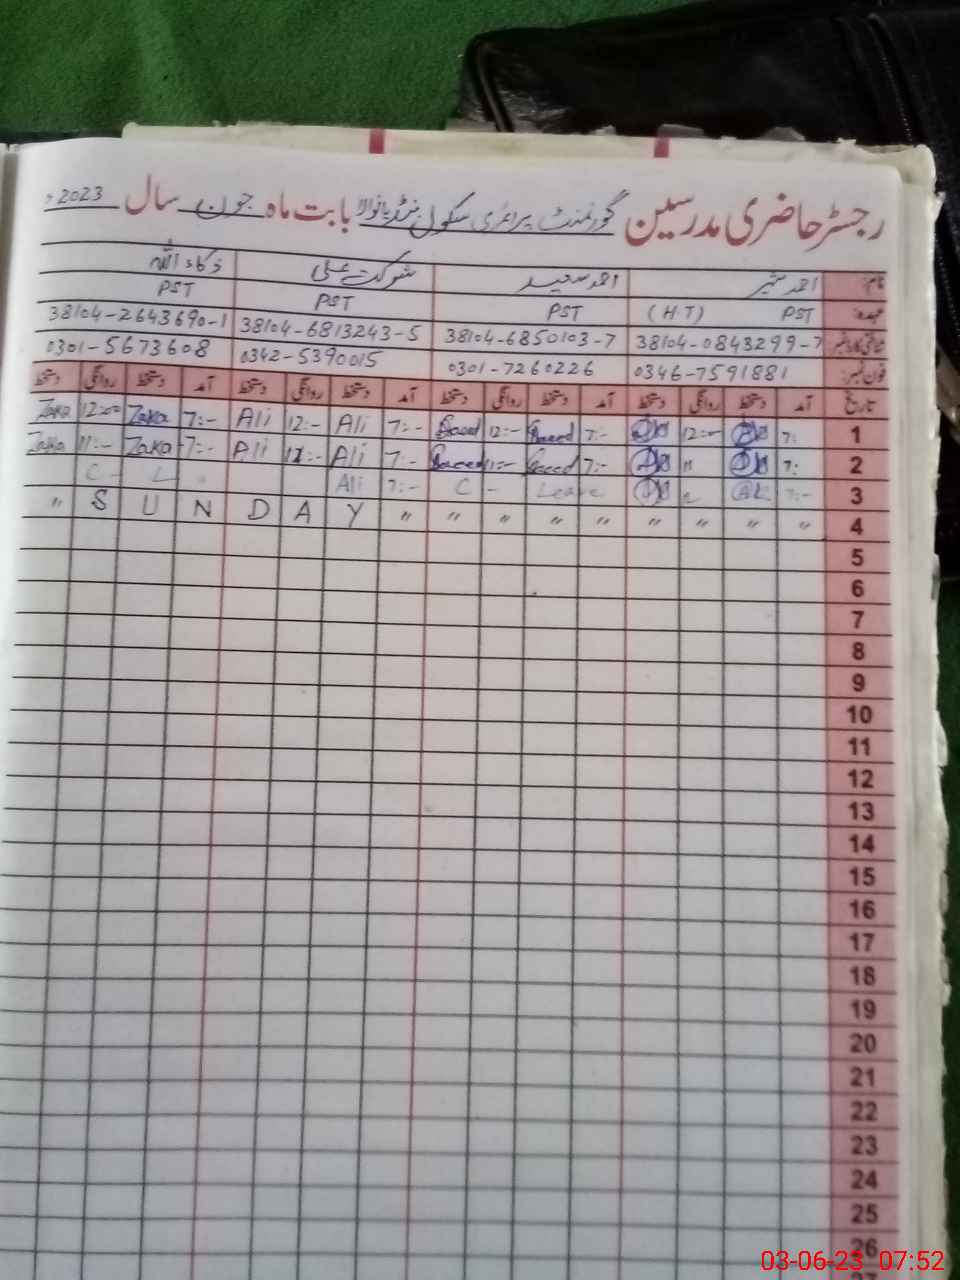 رجسٹر حاضری مدرسین گورنمنٹ پرائمری سکول بابت ماہ جون سال 2023ء
نام: احمد شیر احمد سعید شوکت علی ذکاء اللہ
عہدہ: PST (H.T) PST PST PST
شناختی کارڈ نمبر 38104-0843299-7 38104-6850103-7 38104-6813243-5 38104-2643690-1
فون نمبر: 0346-7591881 0301-7260226 0342-5390015 0301-5673608
تاریخ آمد دستخط روانگی دستخط آمد دستخط روانگی دستخط آمد دستخط روانگی دستخط آمد دستخط روانگی دستخط
1 7: 12:- 7:- Saeed 12:- Saeed 7:- Ali 12:- Ali 7:- Zaka 12:00 Zaka
2 7: " 7:- Saeed 11:- Saeed 7:- Ali 11:- Ali 7:- Zaka 11:- Zaka
3 7:- " C - Leave 7:- Ali C - L
4 " " " " " " " " " S U N D A Y
5
6
7
8
9
10
11
12
13
14
15
16
17
18
19
20
21
22
23
24
25
26
27
03-06-23 07:52